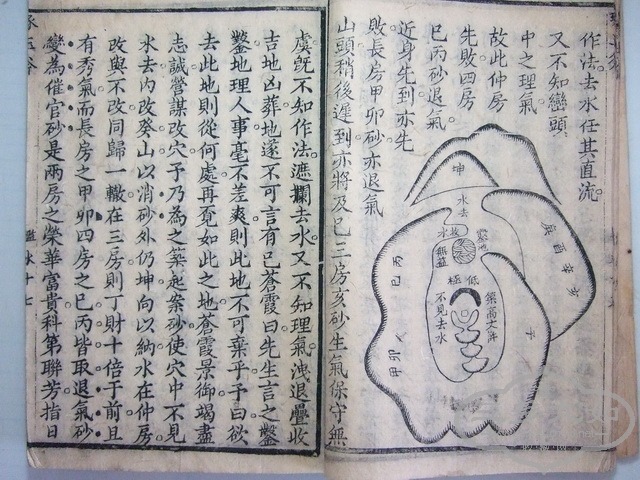 作法去水任其直流
又不知巒頭
中之理氣
故此仲房
先敗四房
巳丙砂退氣
近身先到亦先
敗長房甲卯砂亦退氣
山頭稍後遲到亦將及巳三房亥砂生氣保守無
坤
水去
庚酉辛
亥
子
水放
極低
築高丈許
不見去水
巳丙
甲卯
虞既不知作法遮攔去水又不知理氣洩退疊收
吉地凶葬地遂不可言有巳蒼霞曰先生言之鑿
鑿地理人事毫不差爽則此地不可棄乎予曰欲
去此地則從何處再覓如此之地蒼霞景御竭盡
志誠營謀改穴予乃為之築起案砂使穴中不見
水去內改癸山以消砂外仍坤向以納水在仲房
改與不改同歸一轍在三房則丁財十倍于前且
有秀氣而長房之甲卯四房之巳丙皆取退氣砂
變為催官砂是兩房之榮華富貴科第聯芳指日